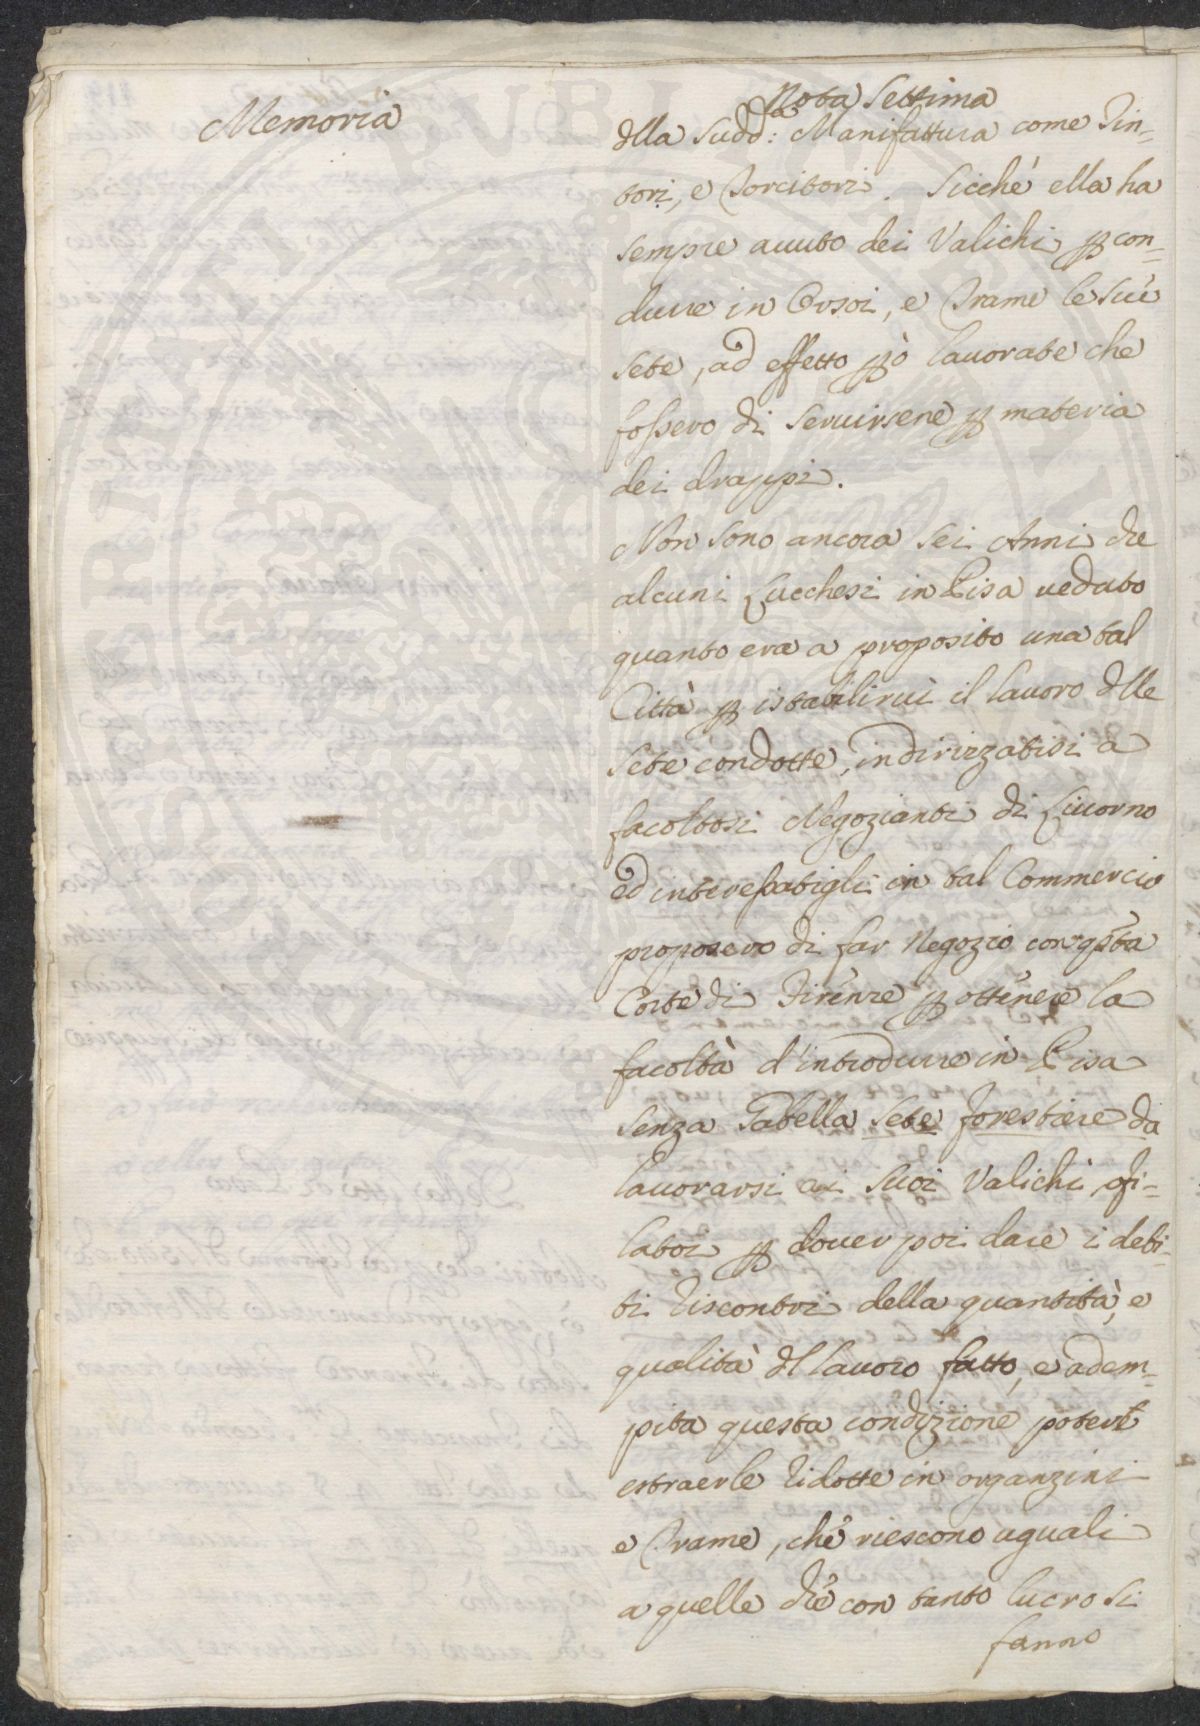 Memoria
Nota Settima
dlla Sudd:ª Manifattura come Tin=
tori, e Torcitori. Sicchè ella ha
sempre auuto dei Valichi p con=
durre in Orsoi, e Trame le Sue
Sete, ad effetto pò lauorate che
fossero di Seruirsene p materia
dei drappi.
Non Sono ancora Sei Anni che
alcuni Lucchesi in Pisa ueduto
quanto era a proposito una tal
Città p istabilirui il lauoro dlle
Sete condotte, indirizzatisi a
facoltosi Negozianti di Liuorno
ed interessatigli in tal Commercio
proposero di far Negozio con qsta
Corte di Firenze p ottenere la
facoltà d'introdurre in Pisa
Senza Gabella Sete forestiere da
lauorarsi ai Suoi Valichi, o fi=
latoi p douer poi dare i debi=
ti riscontri della quantità, e
qualità dl lauoro fatto, e adem=
pita questa condizione poterle
estraerle ridotte in organzini
e Trame, che riescono uguali
a quelle che con tanto lucro Si
fanno
PVBLICA